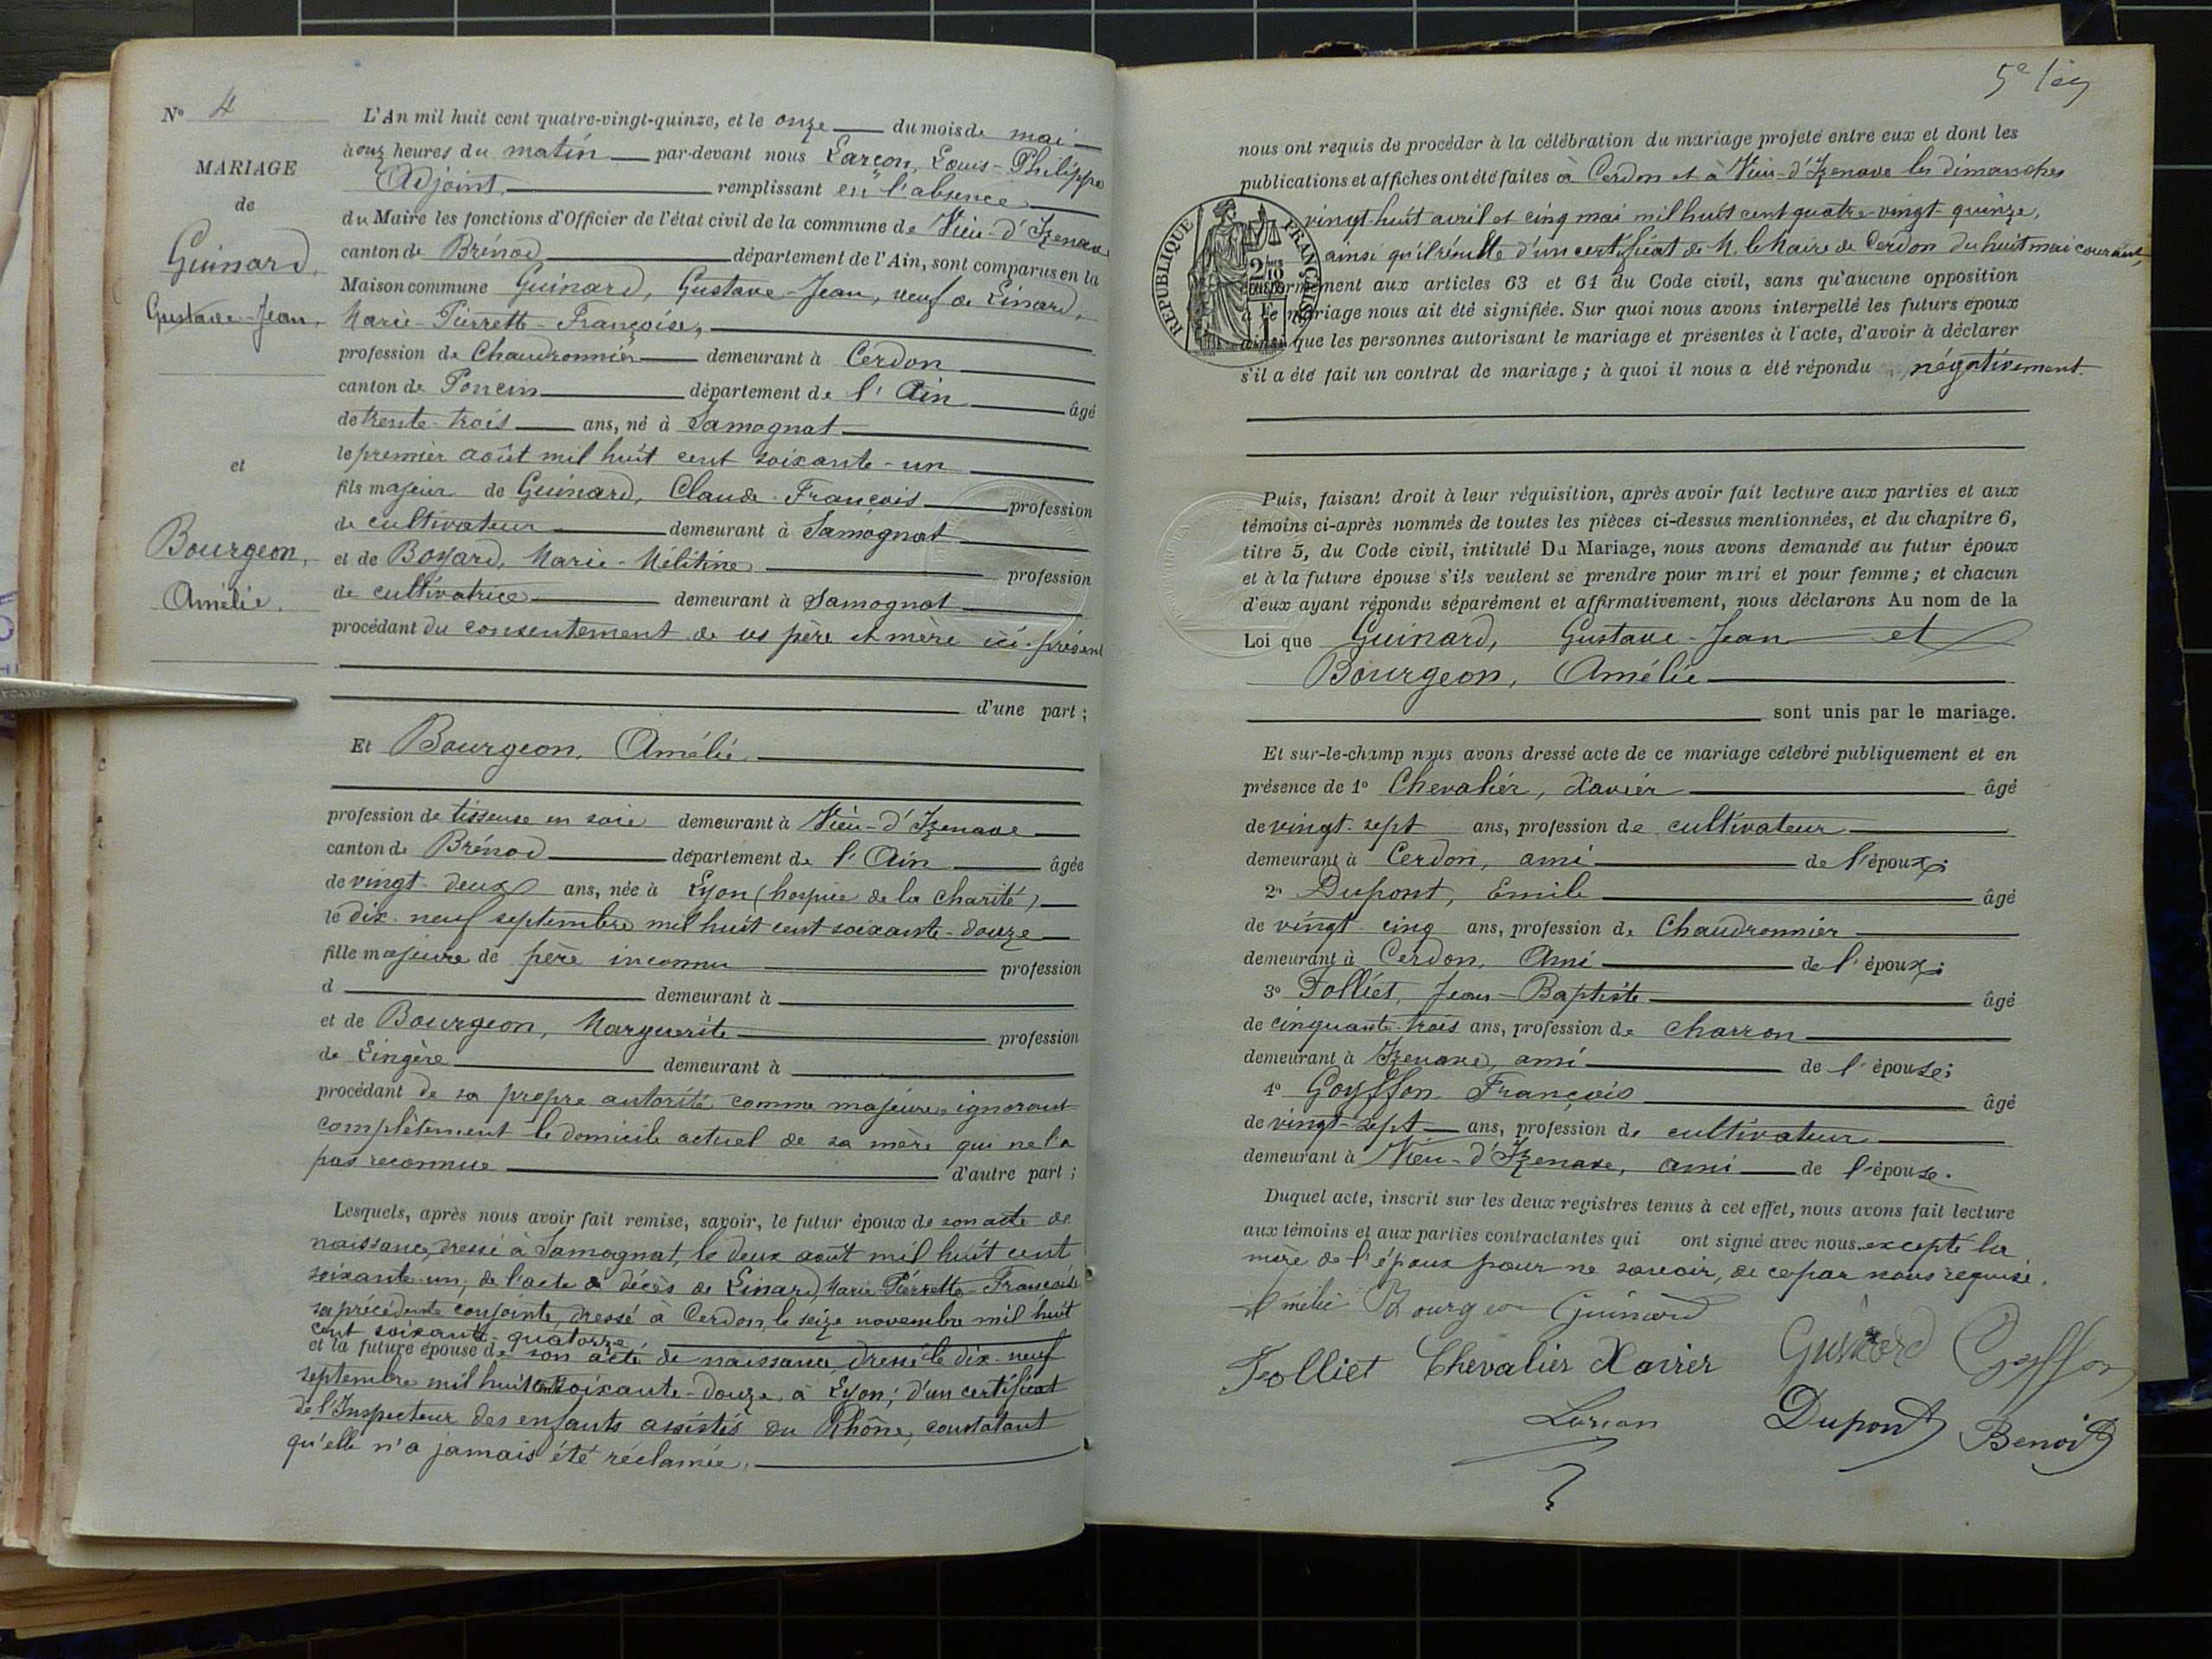 N° 4
MARIAGE
de
Guinard,
Gustave-Jean,
et
Bourgeon,
Amélie.
L'An mil huit cent quatre-vingt-quinze, et le onze du mois de mai
à onze heures du matin par-devant nous Larçon, Louis-Philippe
Adjoint, remplissant en l'absence
du Maire les fonctions d'Officier de l'état civil de la commune de Vieu-d'Izenave
canton de Brénod département de l'Ain, sont comparus en la
Maison commune Guinard, Gustave-Jean, veuf de Linard,
Marie-Pierrette-Françoise,
profession de Chaudronnier demeurant à Cerdon
canton de Poncin département de l'Ain âgé
de trente-trois ans, né à Samognat
le premier août mil huit cent soixante-un
fils majeur de Guinard, Claude-François profession
de cultivateur demeurant à Samognat
et de Boyard, Marie-Mélitine profession
de cultivatrice demeurant à Samognat
procédant du consentement de ses père et mère ici-présent
d'une part ;
Et Bourgeon, Amélie
profession de tisseuse en soie demeurant à Vieu-d'Izenave
canton de Brénod département de l'Ain âgée
de vingt-deux ans, née à Lyon (hospice de la charité)
le dix-neuf septembre mil huit cent soixante-douze
fille majeure de père inconnu profession
d demeurant à
et de Bourgeon, Marguerite profession
de Lingère demeurant à
procédant de sa propre autorité comme majeure ignorant
complètement le domicile actuel de sa mère qui ne l'a
pas reconnue d'autre part ;
Lesquels, après nous avoir fait remise, savoir, le futur époux de son acte de
naissance, dressé à Samognat, le deux août mil huit cent
soixante-un ; de l'acte de décès de Linard, Marie-Pierrette-Françoise
sa précédente conjointe, dressé à Cerdon, le seize novembre mil huit
cent soixante-quatorze
et la future épouse de son acte de naissance, dressé le dix-neuf
septembre mil huit cent soixante-douze, à Lyon ; d'un certificat
de l'Inspecteur des enfants assistés du Rhône, constatant
qu'elle n'a jamais été réclamée.
5e
nous ont requis de procéder à la célébration du mariage projeté entre eux et dont les
publications et affiches ont été faites à Cerdon et à Vieu-d'Izenave les dimanches
vingt-huit avril et cinq mai mil huit cent quatre-vingt-quinze,
ainsi qu'il résulte d'un certificat de M. le Maire de Cerdon du huit mai courant,
conformément aux articles 63 et 64 du Code civil, sans qu'aucune opposition
à ce mariage nous ait été signifiée. Sur quoi nous avons interpellé les futurs époux
ainsi que les personnes autorisant le mariage et présentes à l'acte, d'avoir à déclarer
s'il a été fait un contrat de mariage ; à quoi il nous a été répondu négativement.
RÉPUBLIQUE FRANÇAISE
2/10
Puis, faisant droit à leur réquisition, après avoir fait lecture aux parties et aux
témoins ci-après nommés de toutes les pièces ci-dessus mentionnées, et du chapitre 6,
titre 5, du Code civil, intitulé Du Mariage, nous avons demandé au futur époux
et à la future épouse s'ils veulent se prendre pour mari et pour femme ; et chacun
d'eux ayant répondu séparément et affirmativement, nous déclarons Au nom de la
Loi que Guinard, Gustave-Jean et
Bourgeon, Amélie
sont unis par le mariage.
Et sur-le-champ nous avons dressé acte de ce mariage célébré publiquement et en
présence de 1° Chevalier, Xavier âgé
de vingt-sept ans, profession de cultivateur
demeurant à Cerdon, ami de l'époux ;
2° Dupont, Emile âgé
de vingt-cinq ans, profession de Chaudronnier
demeurant à Cerdon, Ami de l'époux ;
3° Folliet, Jean-Baptiste âgé
de cinquante-trois ans, profession de charron
demeurant à Izenave, ami de l'épouse ;
4° Goyffon François âgé
de vingt-sept ans, profession de cultivateur
demeurant à Vieu-d'Izenave, ami de l'épouse.
Duquel acte, inscrit sur les deux registres tenus à cet effet, nous avons fait lecture
aux témoins et aux parties contractantes qui ont signé avec nous excepté la
mère de l'époux pour ne savoir, de ce par nous requise.
Amélie Bourgeon Guinard
Folliet Chevalier Xavier Guinard Goyffon
Larçon Dupont Benoit